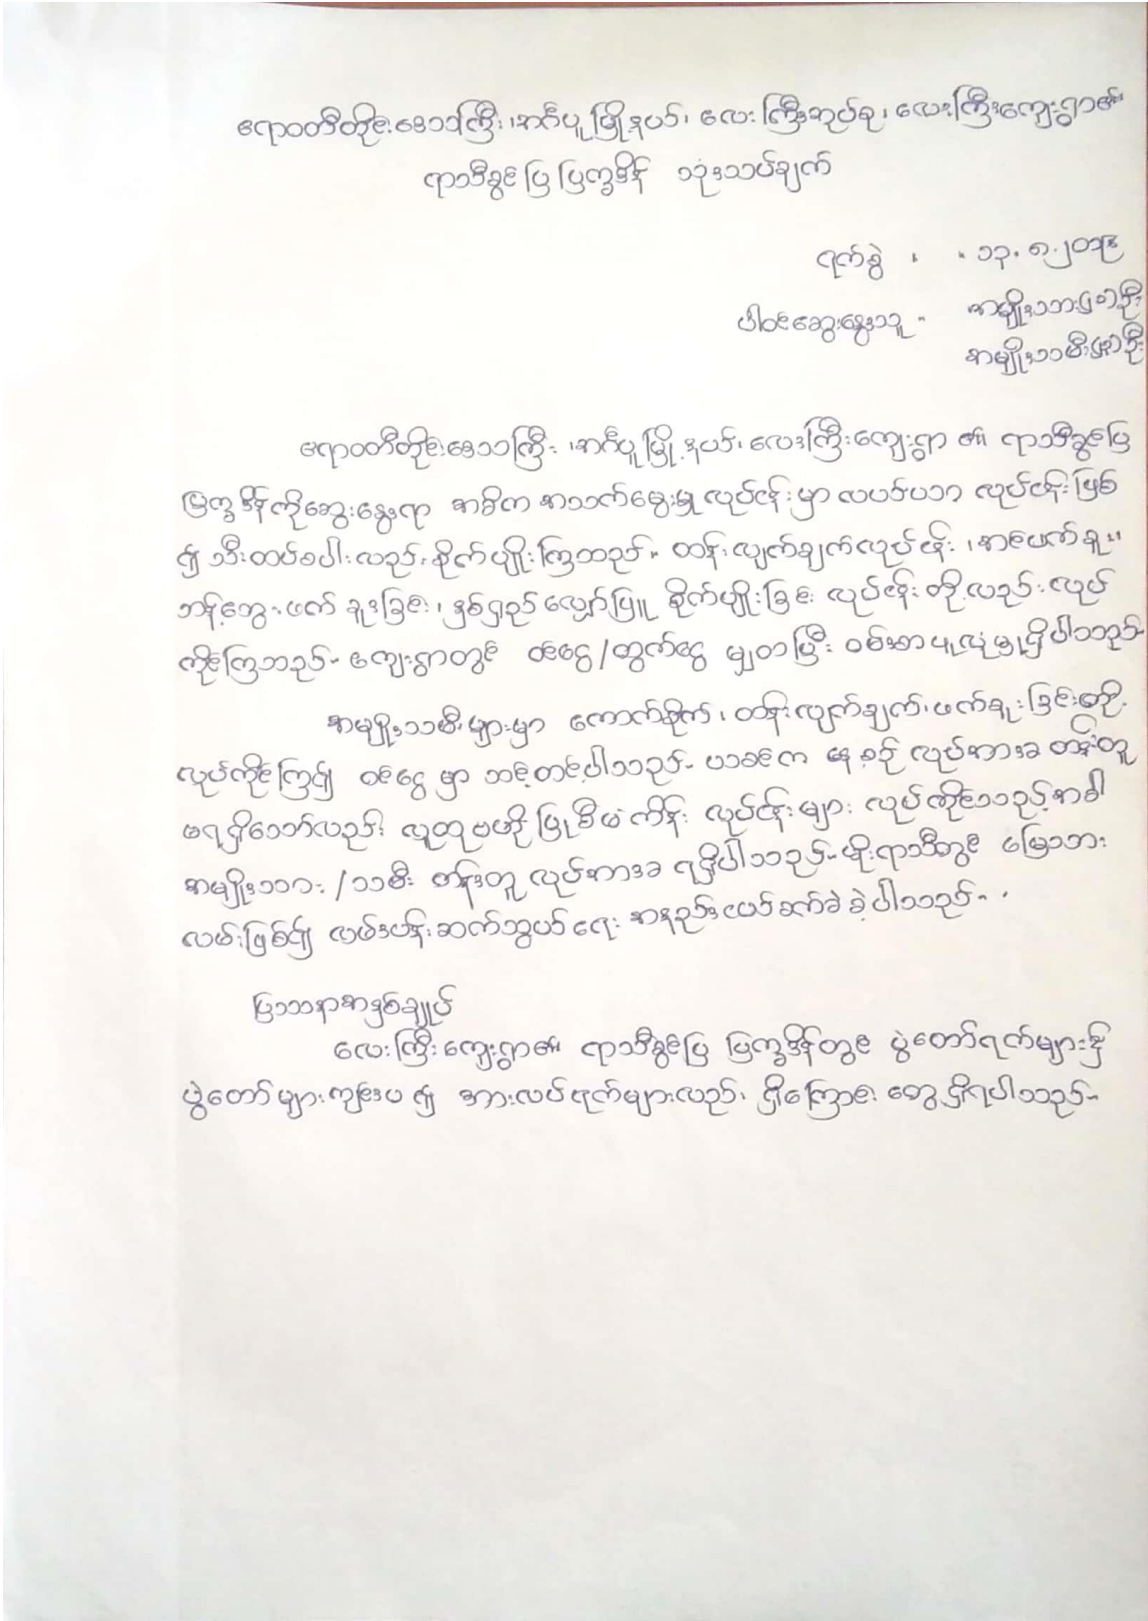 ဧရာဝတီတိုင်းဒေသကြီး၊ အင်္ဂပူမြို့နယ်၊ လေးကြီးအုပ်စု၊ လေးကြီးကျေးရွာ၏
ရာသီခွင်ပြ ပြက္ခဒိန် သုံးသပ်ချက်
ရက်စွဲ ၊ ၁၃.၈.၂၀၁၄
ပါဝင်ဆွေးနွေးသူ - အမျိုးသား ဦး
အမျိုးသမီး ဦး
ဧရာဝတီတိုင်းဒေသကြီး ၊အင်္ဂပူမြို့နယ်၊ လေးကြီးကျေးရွာ ၏ ရာသီခွင်ပြ
ပြက္ခဒိန်ကိုဆွေးနွေးရာ အဓိက အသက်မွေးမှု လုပ်ငန်းမှာ လယ်ယာ လုပ်ငန်းဖြစ်
၍ သီးထပ်စပါးလည်း စိုက်ပျိုးကြသည်။ တန်းလျက်ချက်လုပ်ငန်း ၊
ဖက် ခူးခြင်း ၊ နှစ်ရှည်လျှော်ဖြူ စိုက်ပျိုးခြင်း လုပ်ငန်း တို့လည်း လုပ်
ကိုင်ကြသည်။ ကျေးရွာတွင် ဝင်ငွေ/ထွက်ငွေ မျှတပြီး ဝမ်းစာ ဖူလုံမှုရှိပါသည်။
အမျိုးသမီးများမှာ ကောက်စိုက်၊ တန်းလျက်ချက်၊ ဖက်ခူးခြင်းတို့
လုပ်ကိုင်ကြ၍ ဝင်ငွေ မှာ သင့်တင့်ပါသည်။ ယခင်က နေ့စဉ် လုပ်အားခ တန်းတူ
မရရှိသော်လည်း လူထုဗဟိုပြု စီမံကိန်း လုပ်ငန်းများ လုပ်ကိုင်သည့်အခါ
အမျိုးသား /သမီး တန်းတူ လုပ်အားခ ရရှိပါသည်။ မိုးရာသီတွင် မြေသား
လမ်းဖြစ်၍ လမ်းပန်းဆက်သွယ်ရေး အနည်းငယ်ခက်ခဲ ခဲ့ပါသည်။
ပြဿနာအနှစ်ချုပ်
လေးကြီးကျေးရွာ၏ ရာသီခွင်ပြ ပြက္ခဒိန်တွင် ပွဲတော်ရက်များ၌
ပွဲတော်များကျင်းပ၍ အားလပ်ရက်များလည်း ရှိကြောင်း တွေ့ရှိရပါသည်။